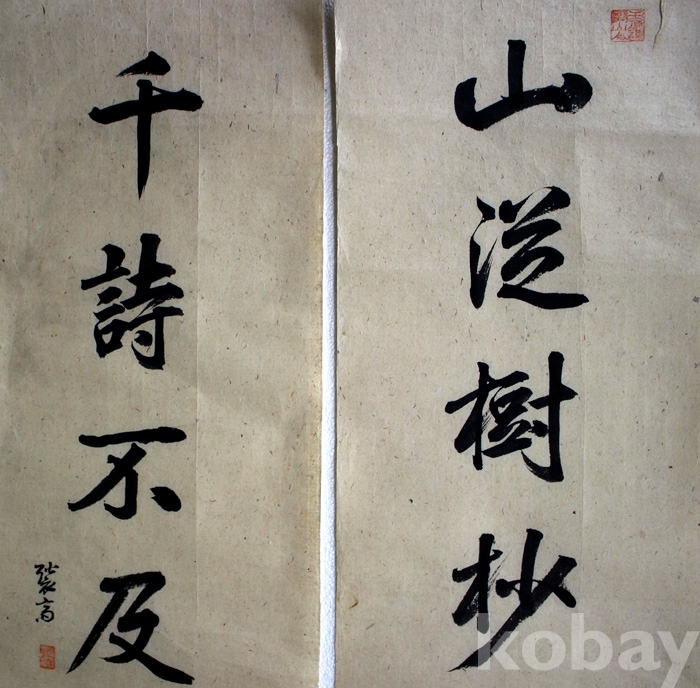 山從樹杪
千詩不及
kobay